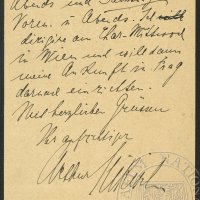 Abends und
Vorm. u Abends. Ich
dirigire am Char. Mittwoch
in Wien und will dann
meine Ankunft in Prag
darnach einrichten.
Mit herzlichen Grüssen
Ihr aufrichtiger
Arthur Nikisch